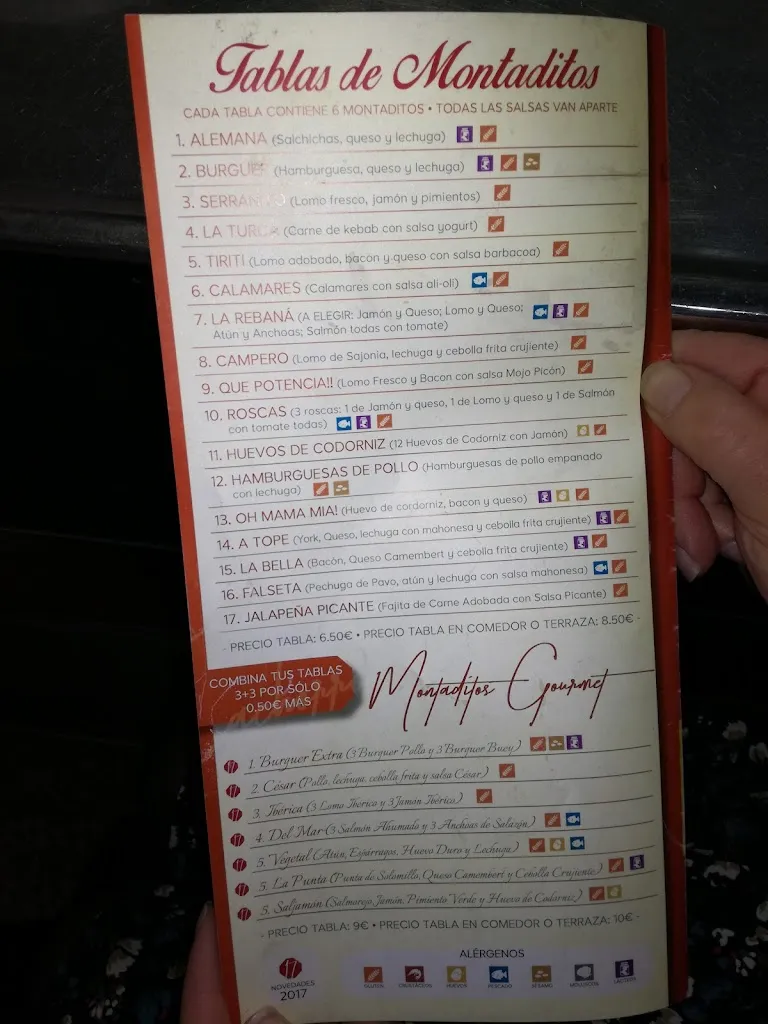 Tablas de Montaditos
CADA TABLA CONTIENE 6 MONTADITOS • TODAS LAS SALSAS VAN APARTE
1. ALEMANA (Salchichas, queso y lechuga)
2. BURGUER (Hamburguesa, queso y lechuga)
3. SERRANITO (Lomo fresco, jamón y pimientos)
4. LA TURCA (Carne de kebab con salsa yogurt)
5. TIRITI (Lomo adobado, bacon y queso con salsa barbacoa)
6. CALAMARES (Calamares con salsa ali-oli)
7. LA REBANÁ (A ELEGIR: Jamón y Queso; Lomo y Queso;
Atún y Anchoas; Salmón todas con tomate)
8. CAMPERO (Lomo de Sajonia, lechuga y cebolla frita crujiente)
9. QUE POTENCIA!! (Lomo Fresco y Bacon con salsa Mojo Picón)
10. ROSCAS (3 roscas: 1 de Jamón y queso, 1 de Lomo y queso y 1 de Salmón
con tomate todas)
11. HUEVOS DE CODORNIZ (12 Huevos de Codorniz con Jamón)
12. HAMBURGUESAS DE POLLO (Hamburguesas de pollo empanado
con lechuga)
13. OH MAMA MIA! (Huevo de cordorniz, bacon y queso)
14. A TOPE (York, Queso, lechuga con mahonesa y cebolla frita crujiente)
15. LA BELLA (Bacón, Queso Camembert y cebolla frita crujiente)
16. FALSETA (Pechuga de Pavo, atún y lechuga con salsa mahonesa)
17. JALAPEÑA PICANTE (Fajita de Carne Adobada con Salsa Picante)
- PRECIO TABLA: 6.50€ • PRECIO TABLA EN COMEDOR O TERRAZA: 8.50€ -
COMBINA TUS TABLAS
3+3 POR SÓLO
0.50€ MÁS
Montaditos Gourmet
17 1. Burguer Extra (3 Burguer Pollo y 3 Burguer Buey)
17 2. César (Pollo, lechuga, cebolla frita y salsa César)
17 3. Ibérica (3 Lomo Ibérico y 3 Jamón Ibérico)
17 4. Del Mar (3 Salmón Ahumado y 3 Anchoas de Salazón)
17 5. Vegetal (Atún, Espárragos, Huevo Duro y Lechuga)
17 5. La Punta (Punta de Solomillo, Queso Camembert y Cebolla Crujiente)
17 5. Saljamón (Salmorejo, Jamón, Pimiento Verde y Huevo de Codorniz)
- PRECIO TABLA: 9€ • PRECIO TABLA EN COMEDOR O TERRAZA: 10€ -
17
NOVEDADES
2017
ALÉRGENOS
GLUTEN CRUSTÁCEOS HUEVOS PESCADO SÉSAMO MOLUSCOS LÁCTEOS